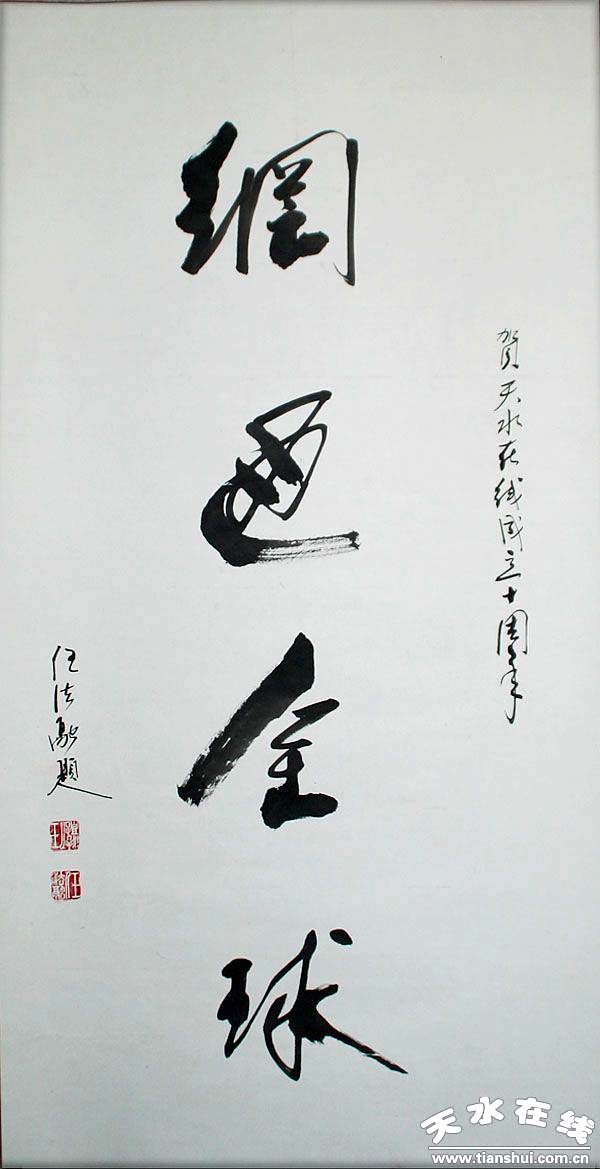 賀天水在线成立十周年
網通全球
任法融題
天水在线
www.tianshui.com.cn